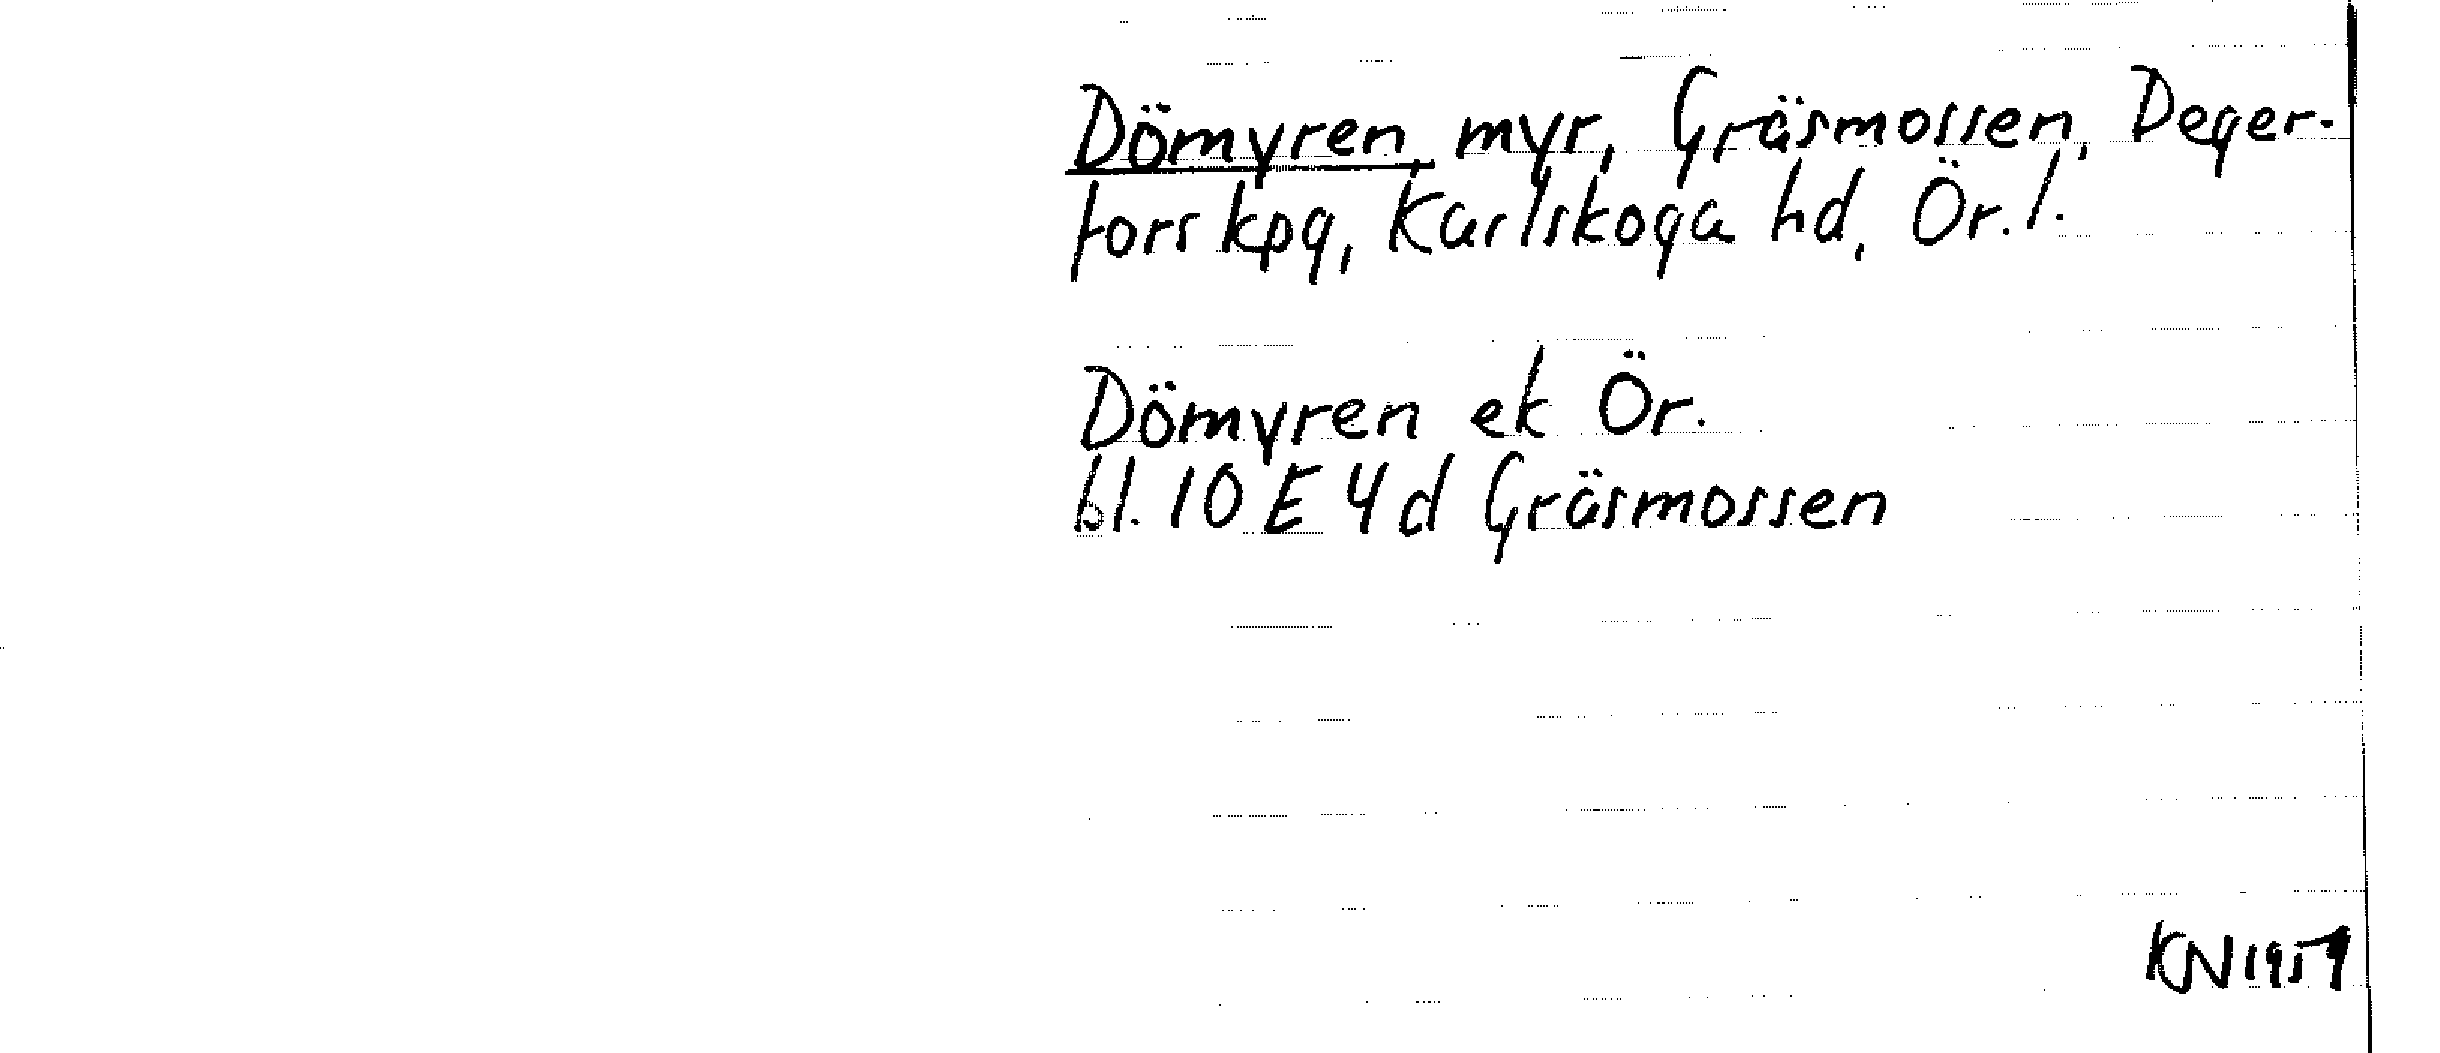 Dömyren, myr, Gräsmossen, Deger-
fors kpg, Karlskoga hd, Ör. l.
Dömyren ek Ör.
bl. 10 E 4 d Gräsmossen
KN